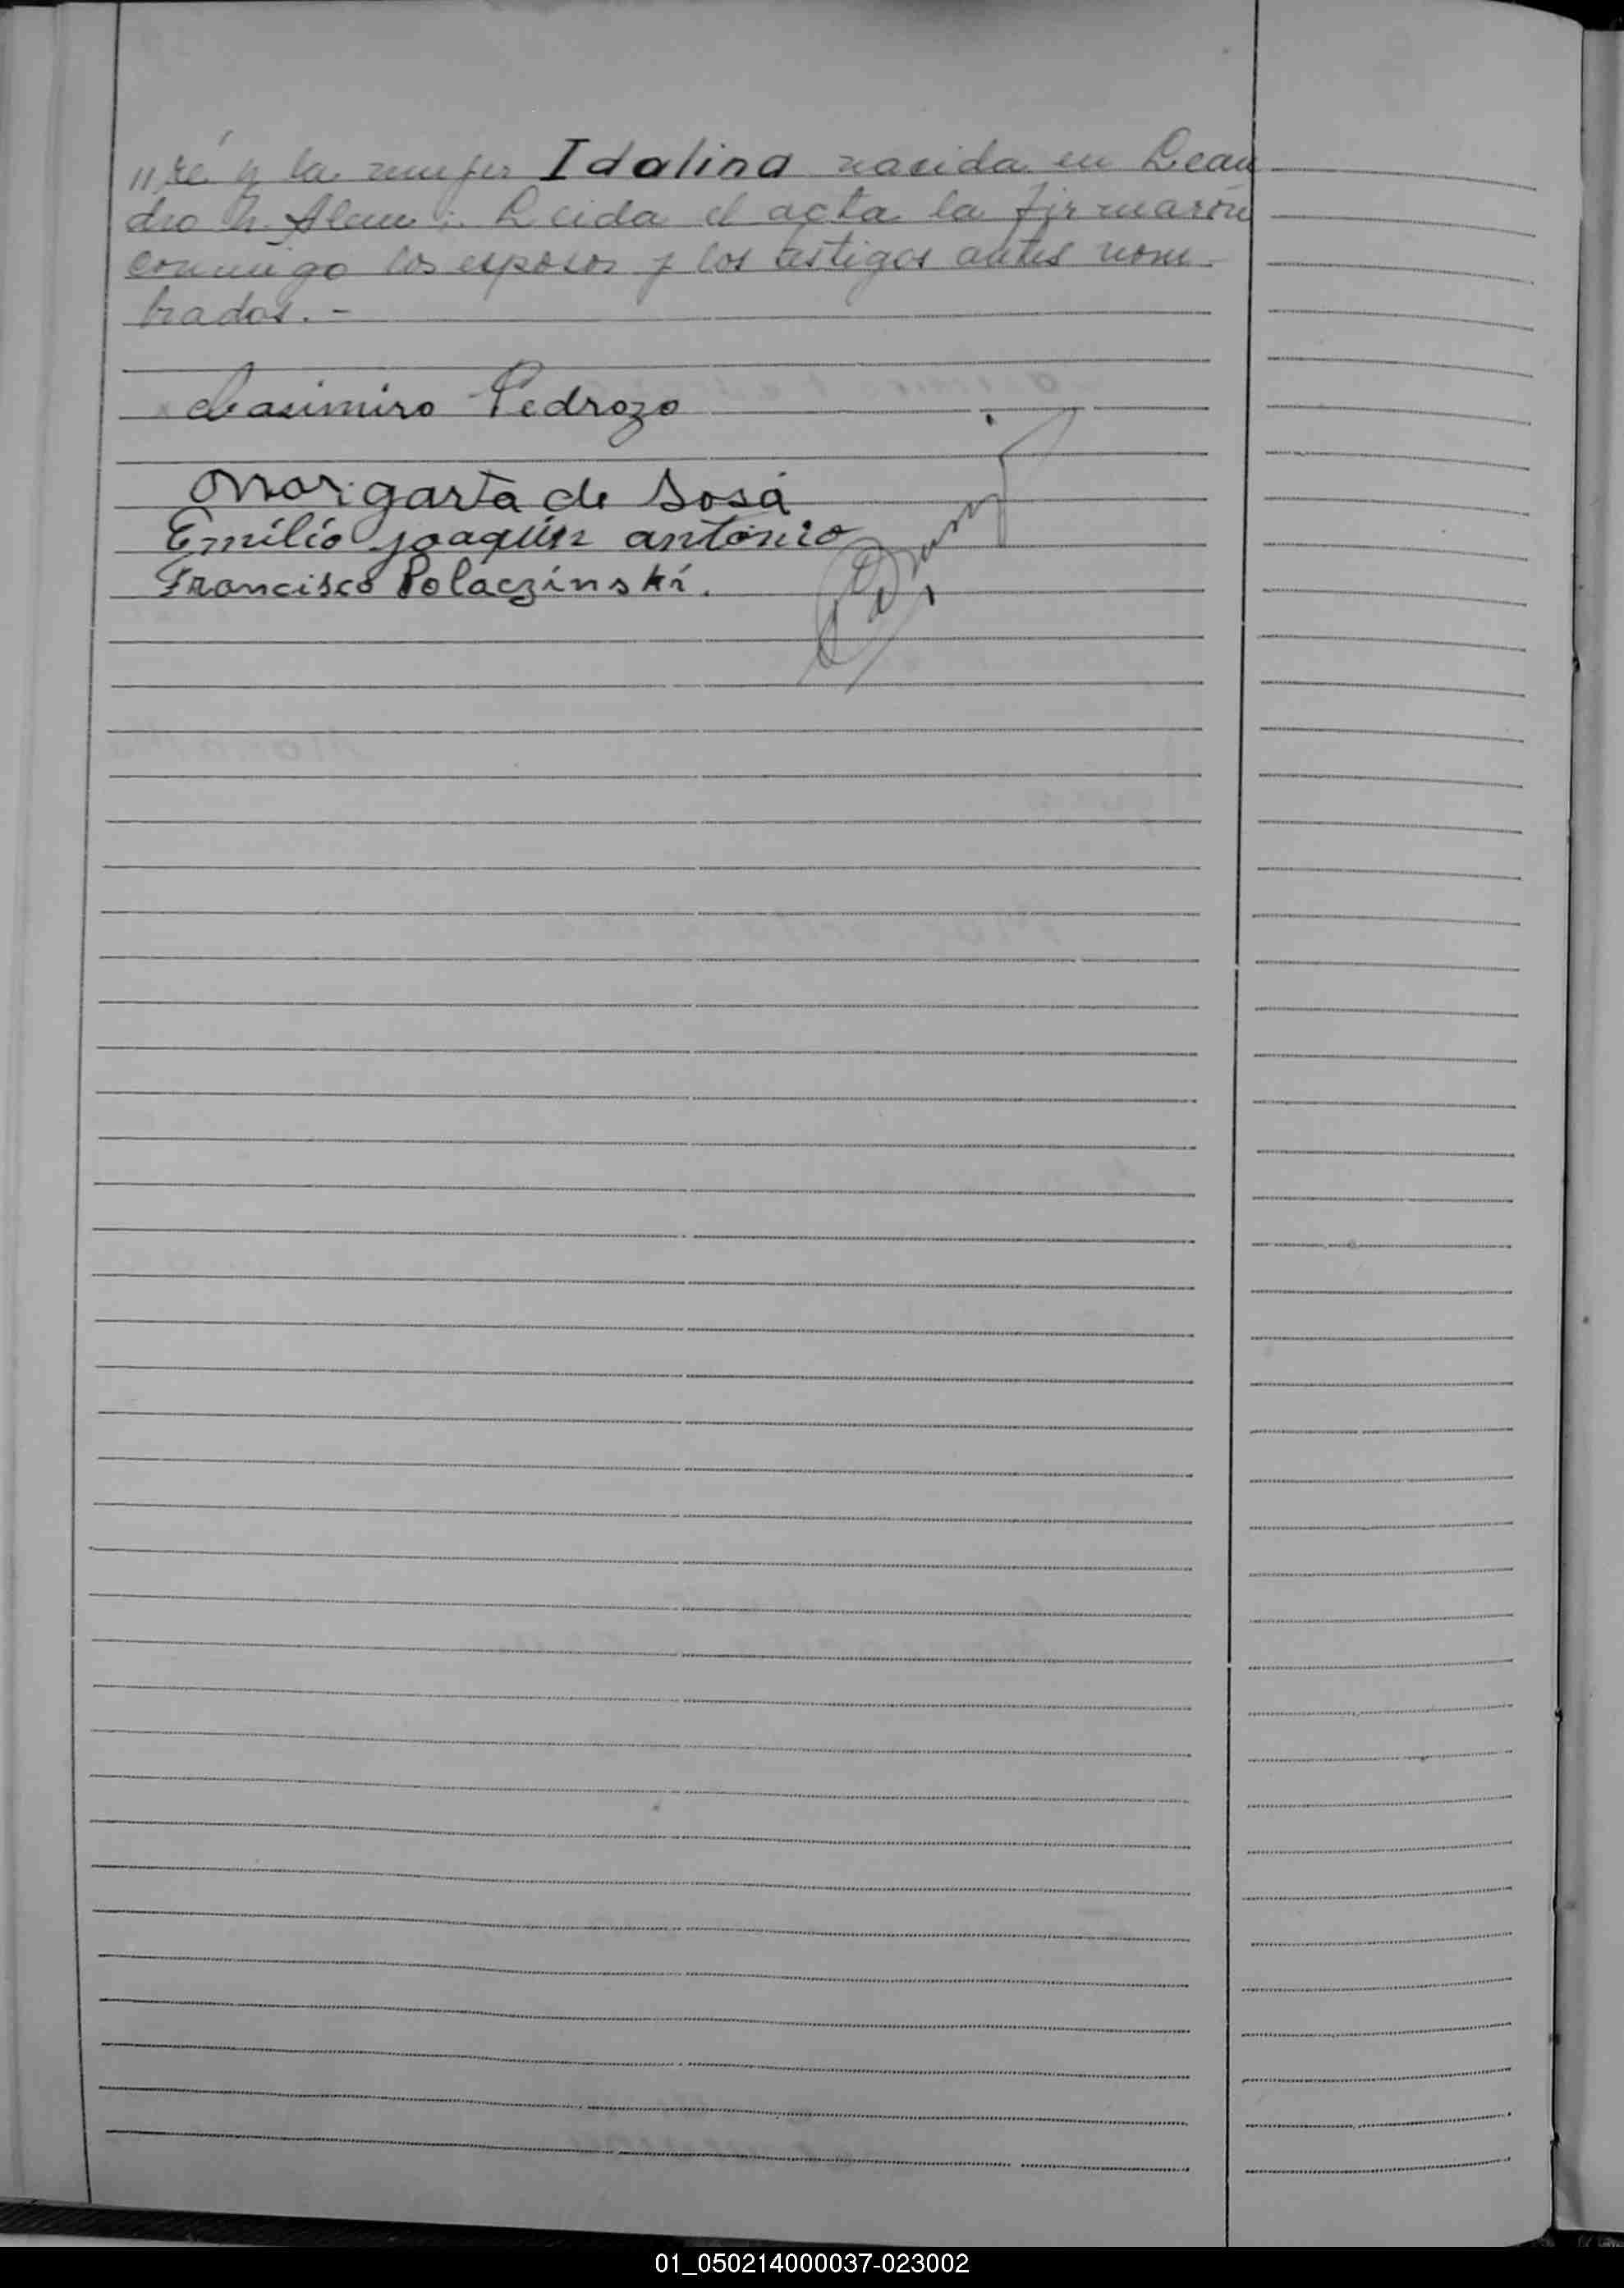 "ré y la mujer Idalina nacida en Lean
dro N. Alem: Leida el acta la firmaron
conmigo los esposos y los testigos antes nom-
brados.-
Casimiro Pedrozo
Margarta de Sosa
Emilio Joaquín antonio
Francisco Polaczinski.
01_050214000037-023002